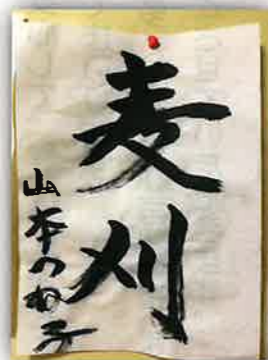 麦刈
山本のね子